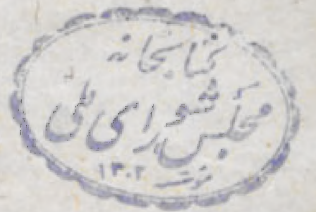 کتابخانه
مجلس شورای ملی
۱۳۰۲